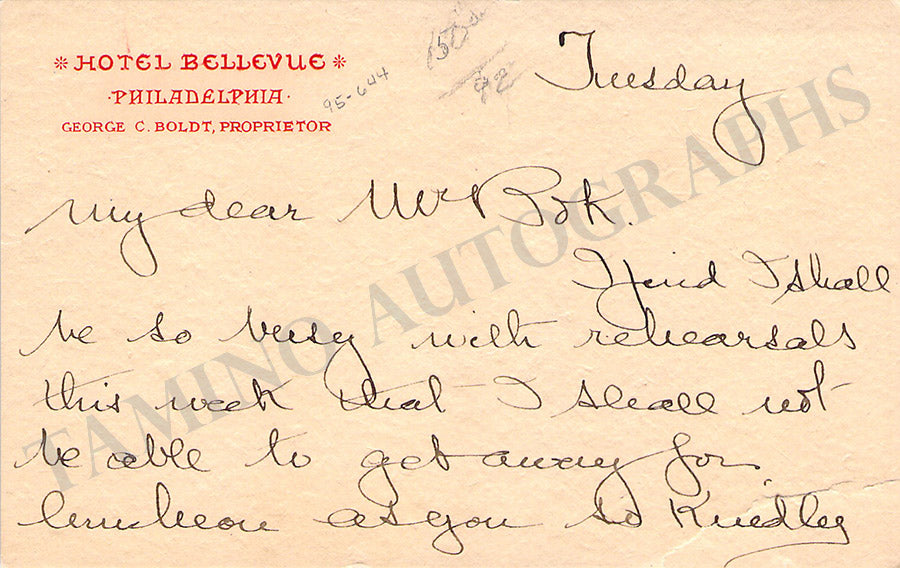 * HOTEL BELLEVUE *
·PHILADELPHIA·
GEORGE C. BOLDT, PROPRIETOR
95-644
Tuesday
My dear Mr Bok.
I find I shall
be so busy with rehearsals
this week that I shall not
be able to get away for
luncheon as you so Kindly
TAMINO AUTOGRAPHS